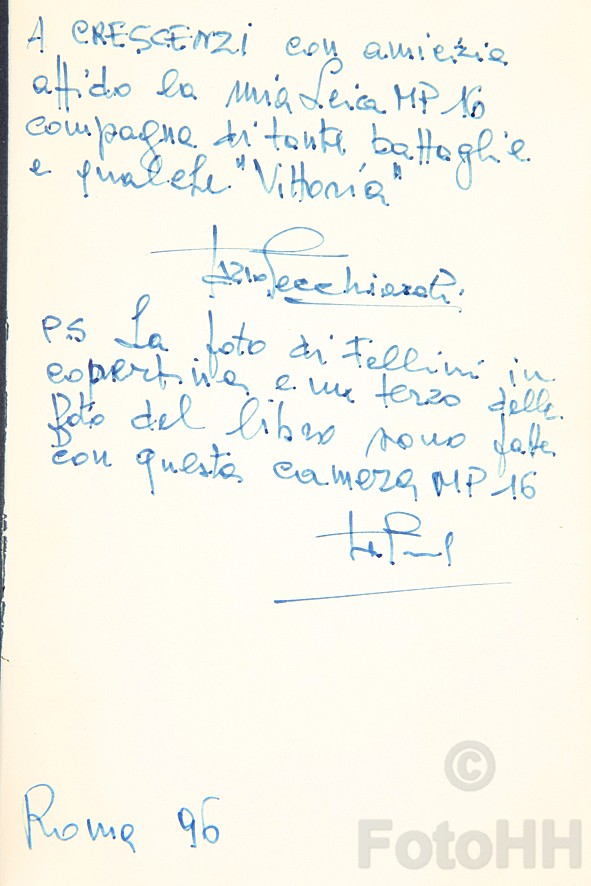 A CRESCENZI con amicizia
affido la mia Leica MP 16
compagna di tante battaglie
e qualche "Vittoria"
Tazio Secchiaroli
PS La foto di Fellini in
copertina e un terzo delle
foto del libro sono fatte
con questa camera MP 16
Roma 96
©
FotoHH